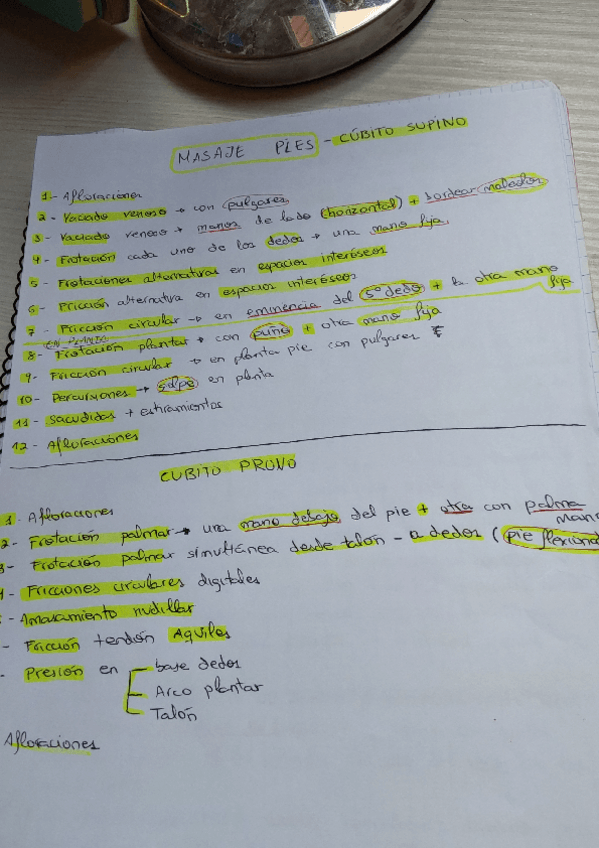 MASAJE PIES - CÚBITO SUPINO
1- Afloraciones
2- Vaciado venoso → con pulgares
3- Vaciado venoso → manos de lado (horizontal) + bordear maleolos
4- Frotación cada uno de los dedos → una mano fija.
5- Frotaciones alternativas en espacios interóseos
6- Fricción alternativa en espacios interóseos
7- Fricción circular → en eminencia del 5º dedo + la otra mano fija
8- Frotación plantar → con puño + otra mano fija
9- Fricción circular → en plantar pie con pulgares
10- Percusiones → golpe en planta
11- Sacudidas + estiramientos
12- Afloraciones
CUBITO PRONO
1- Afloraciones
2- Frotación palmar → una mano debajo del pie + otra con palma
mano
3- Frotación palmar simultánea desde talón - a dedos (pie flexionad
- Fricciones circulares digitales
- Amasamiento nudillar
- Fricción tendón Aquiles
- Presión en base dedos
Arco plantar
Talón
Afloraciones